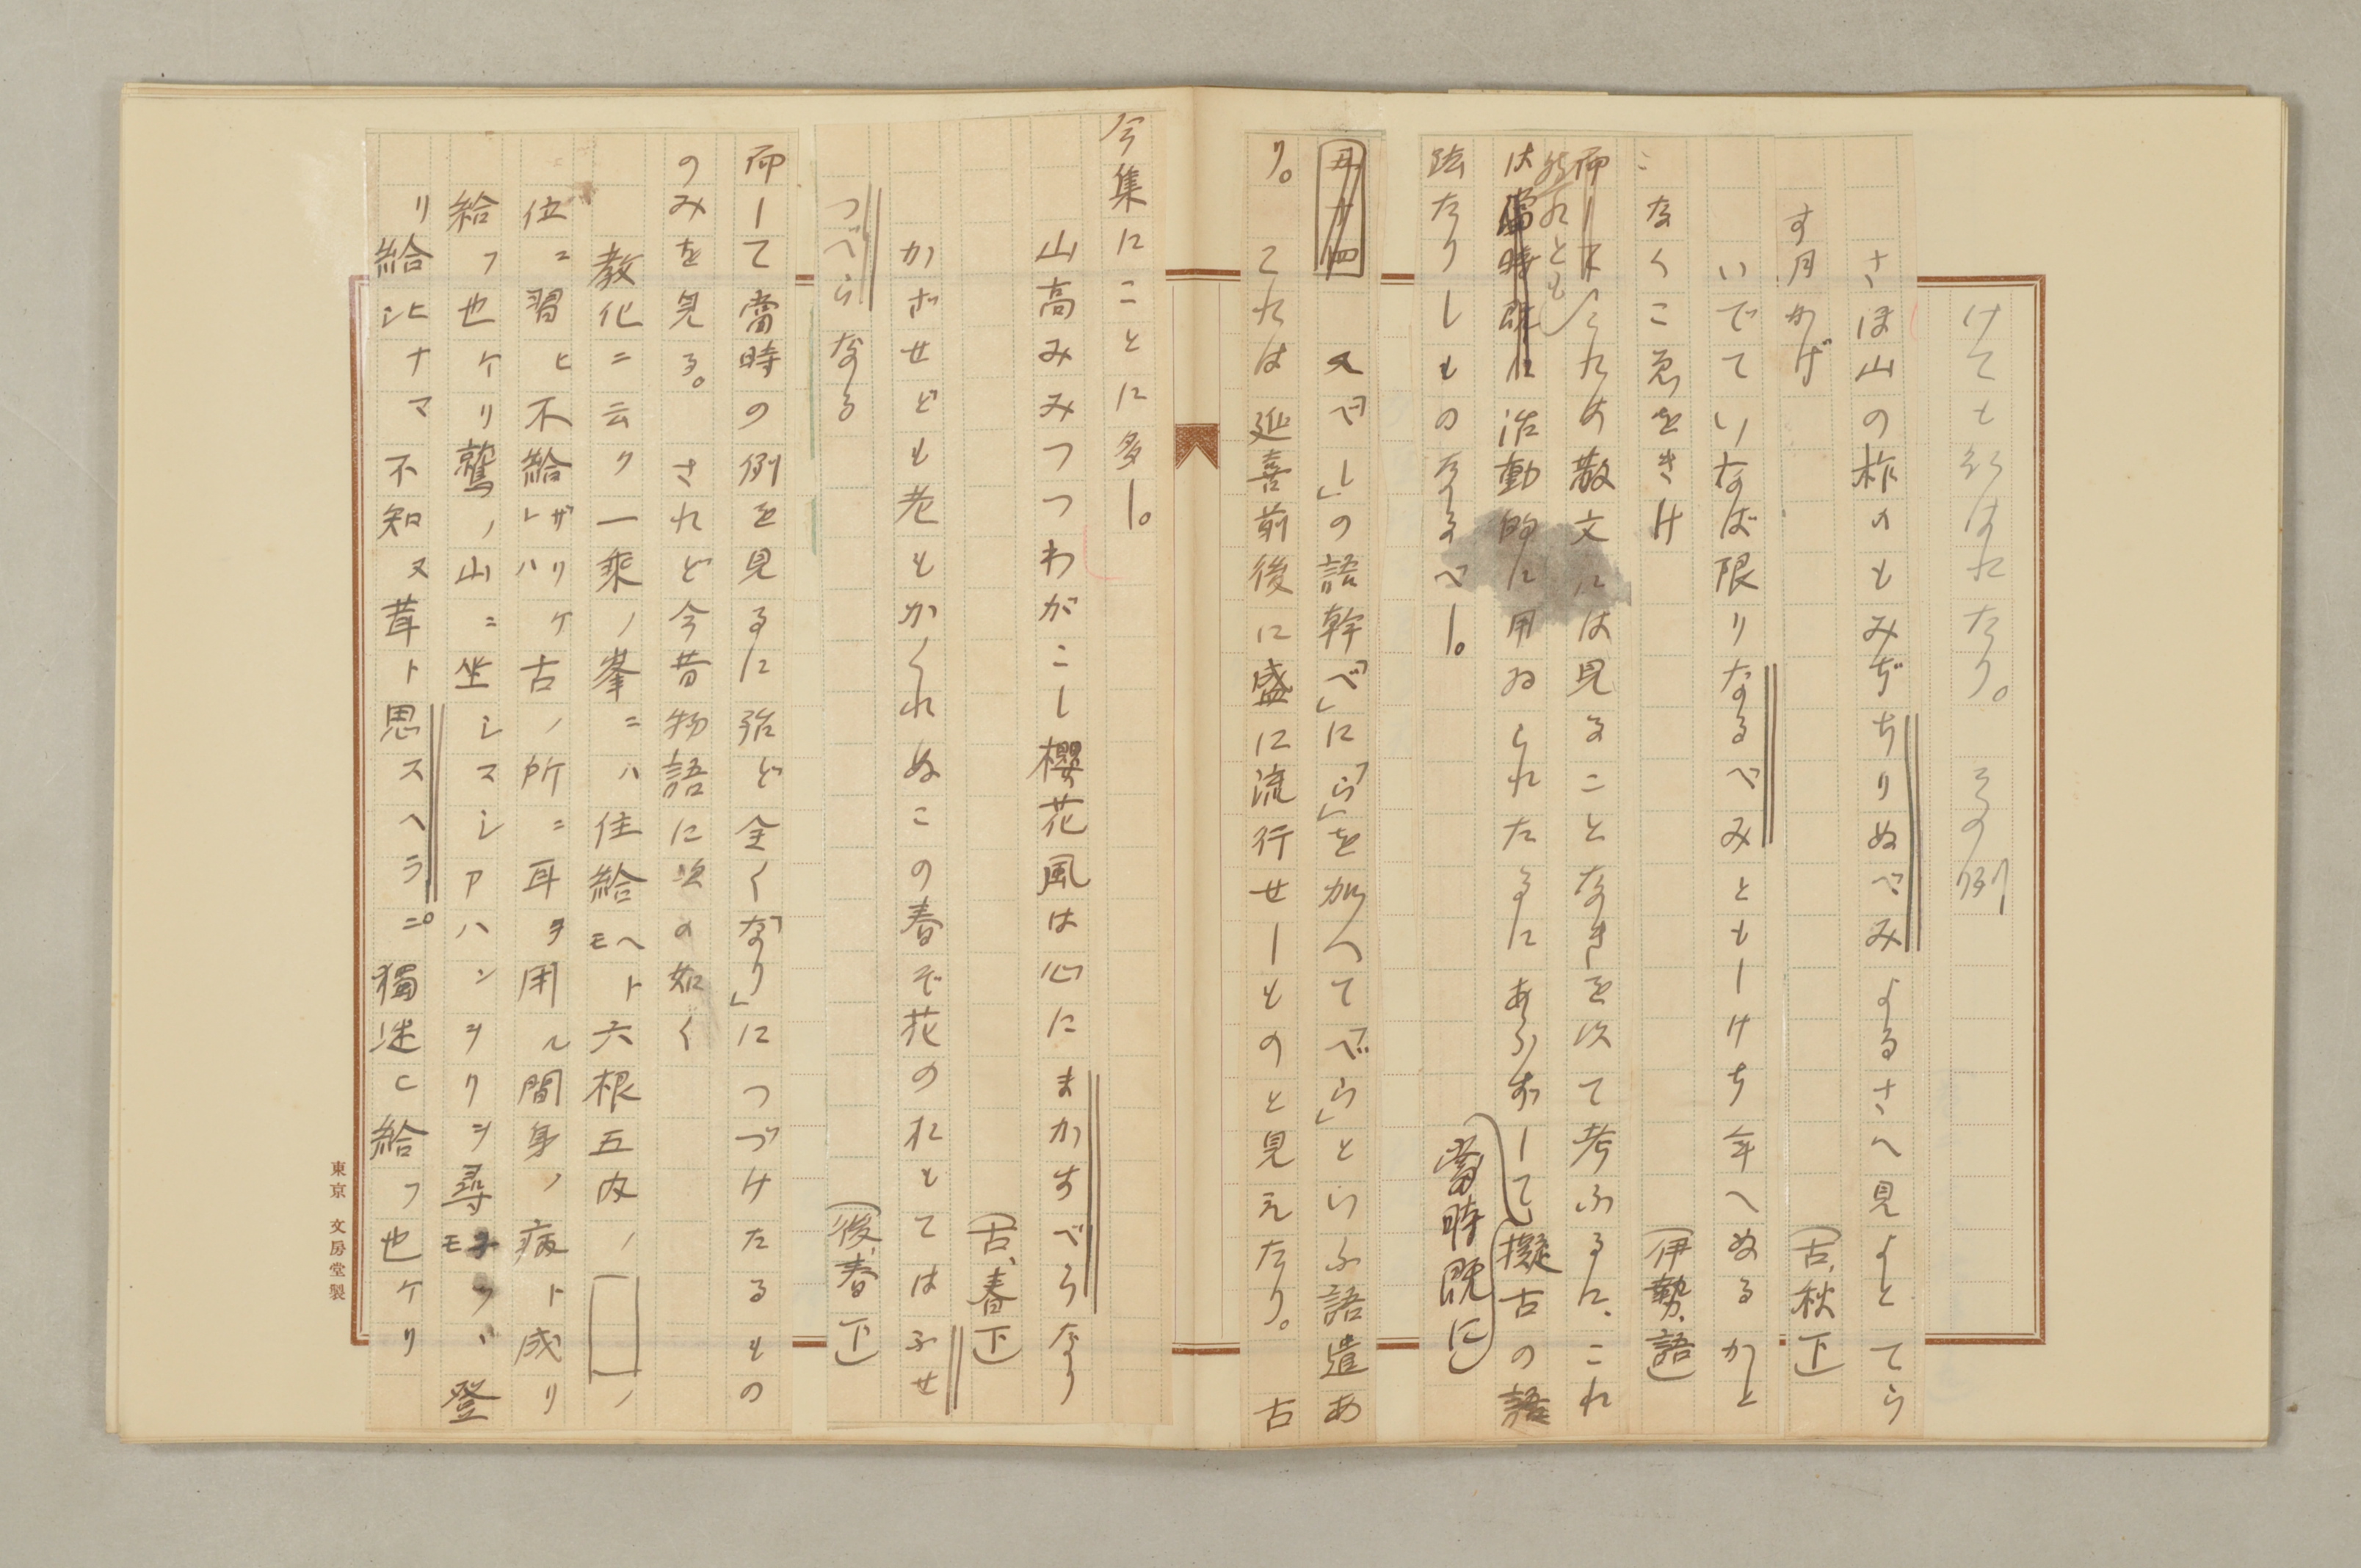 けても行はれたり。 その例
さほ山の柞のもみぢちりぬべみよるさへ見よとてら
す月かげ (古、秋下)
いでていなば限りなるべみともしけち年へぬるかと
なくこゑをきけ (伊勢、語)
これらは散文には見ることなきを以て考ふるに、これ
然れども
は當時既に活動的に用ゐられたるにあらずして擬古の語
當時既に
なりしものなるべし。
「べし」の語幹「べ」に「ら」を加へて「べら」といふ語遣あ
り。 これは延喜前後に盛に流行せしものと見えたり。 古
今集にことに多し。
山高みみつつわがこし櫻花風は心にまかすべらなり
(古、春下)
かざせども老もかくれぬこの春ぞ花のおもてはふせ
つべらなる (後、春下)
而して當時の例を見るに殆ど全く「なり」につづけたるもの
のみを見る。 されど今昔物語に次の如く
教化ニ云ク一乘ノ峯ニハ住給ヘトモ六根五内ノ□ノ
位ニ習ヒ不給ザリケレハ古ノ所ニ耳ヲ用ル間身ノ病ト成リ
給フ也ケリ鷲ノ山ニ坐シマシアハンヲリヲ尋 登
リ給ヒシナマ不知ヌ茸ト思スヘラニ。獨迷ヒ給フ也ケリ
東京 文房堂製